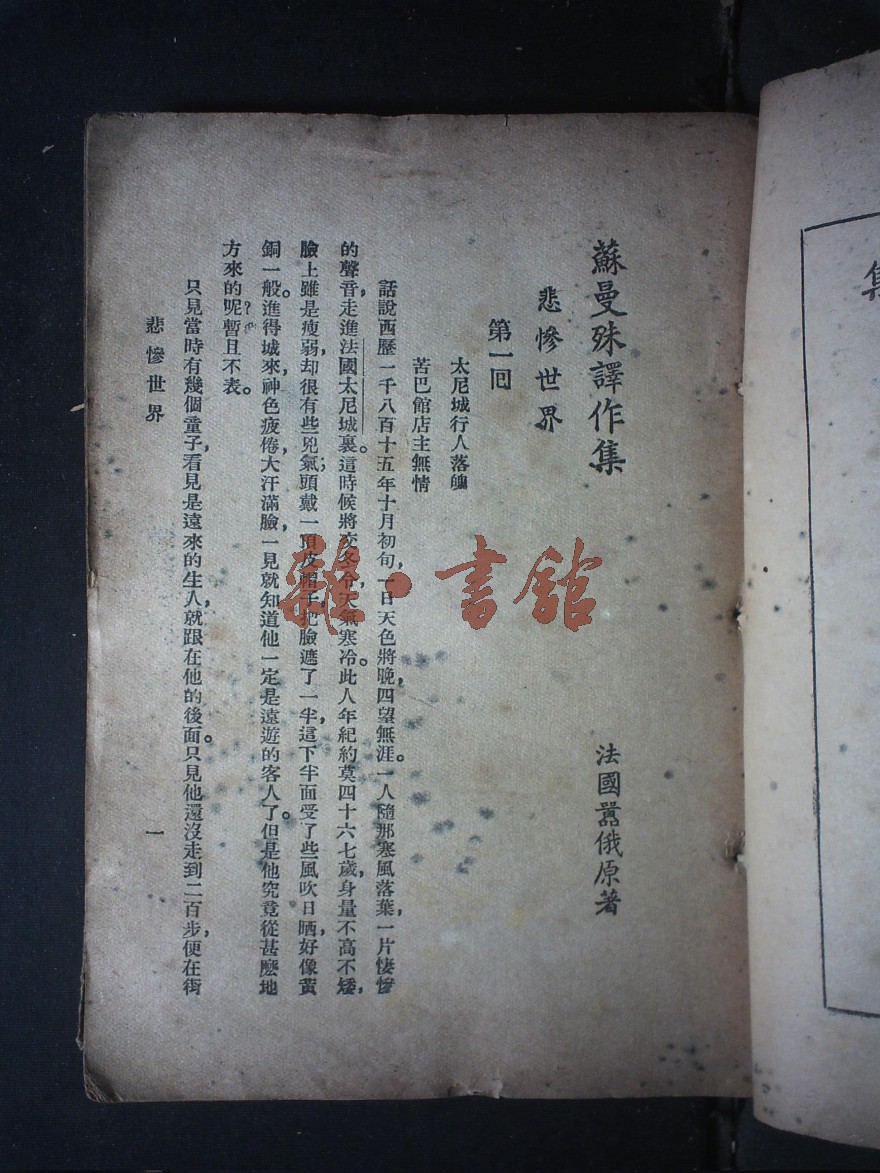 蘇曼殊譯作集
法國嚣俄原著
悲慘世界
第一回
太尼城行人落魄
苦巴館店主無情
話說西歷一千八百十五年十月初旬，一日天色將晚，四望無涯。一人隨那寒風落葉，一片悽慘
的聲音，走進法國太尼城裏。這時候將交冬令，天氣寒冷。此人年紀約莫四十六七歲，身量不高不矮，
臉上雖是瘦弱，却很有些兇氣；頭戴一頂皮帽子，把臉遮了一半，這下半面受了些風吹日晒，好像黃
銅一般。進得城來，神色疲倦，大汗滿臉，一見就知道他一定是遠遊的客人了。但是他究竟從甚麽地
方來的呢？暫且不表。
只見當時有幾個童子，看見是遠來的生人，就跟在他的後面。只見他還沒走到二百步，便在街
悲慘世界
一
集
雜·書館